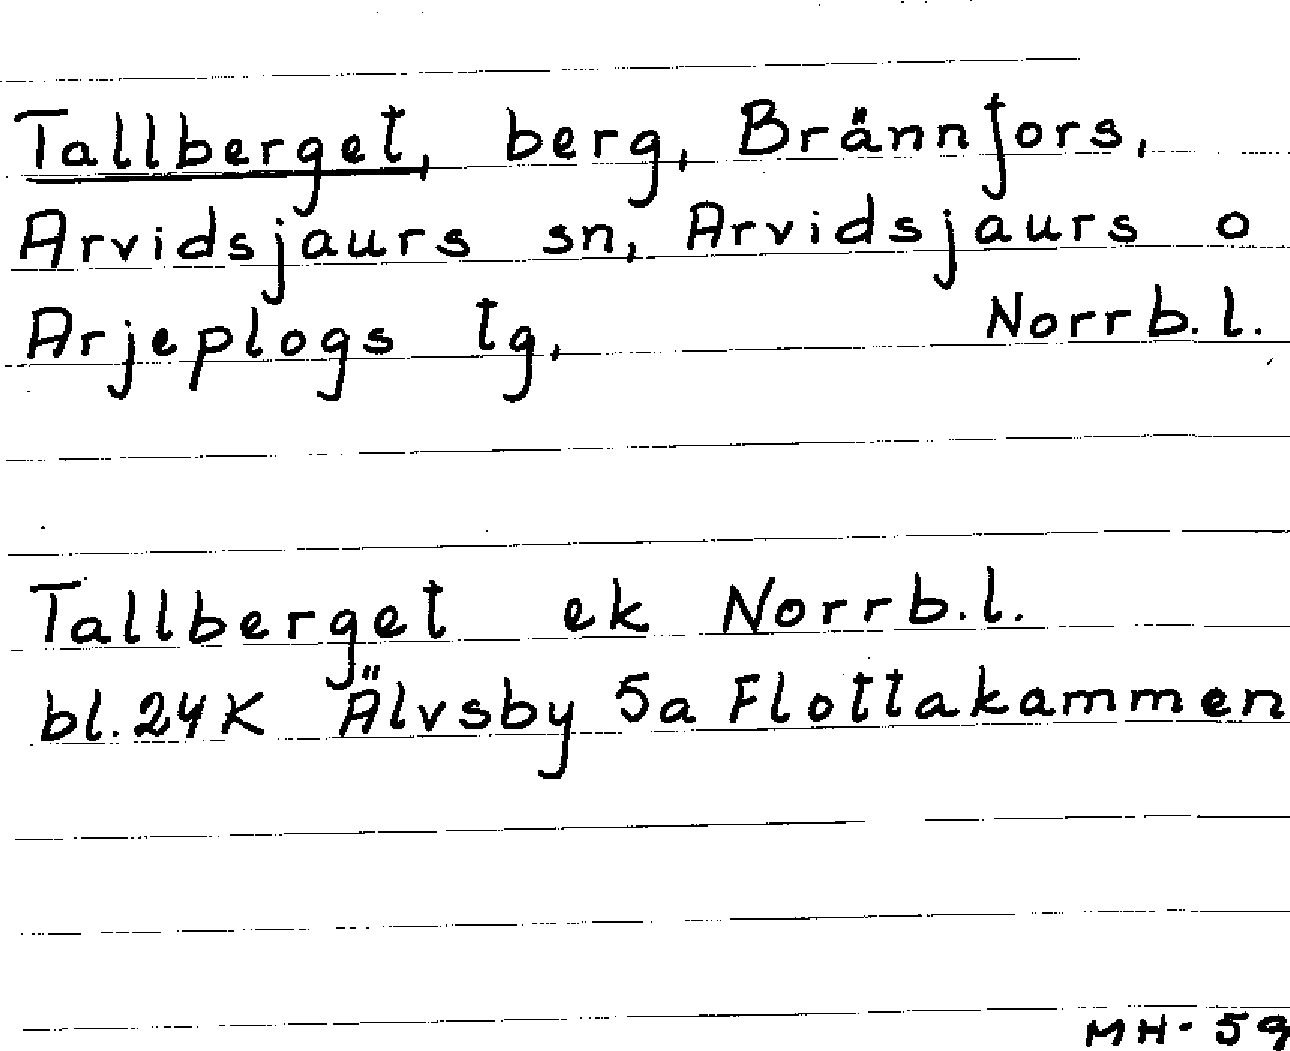 Tallberget, berg, Brännfors,
Arvidsjaurs sn, Arvidsjaurs o
Arjeplogs tg, Norrb.l.
Tallberget ek Norrb.l.
bl.24K Älvsby 5a Flottakammen
MH-59